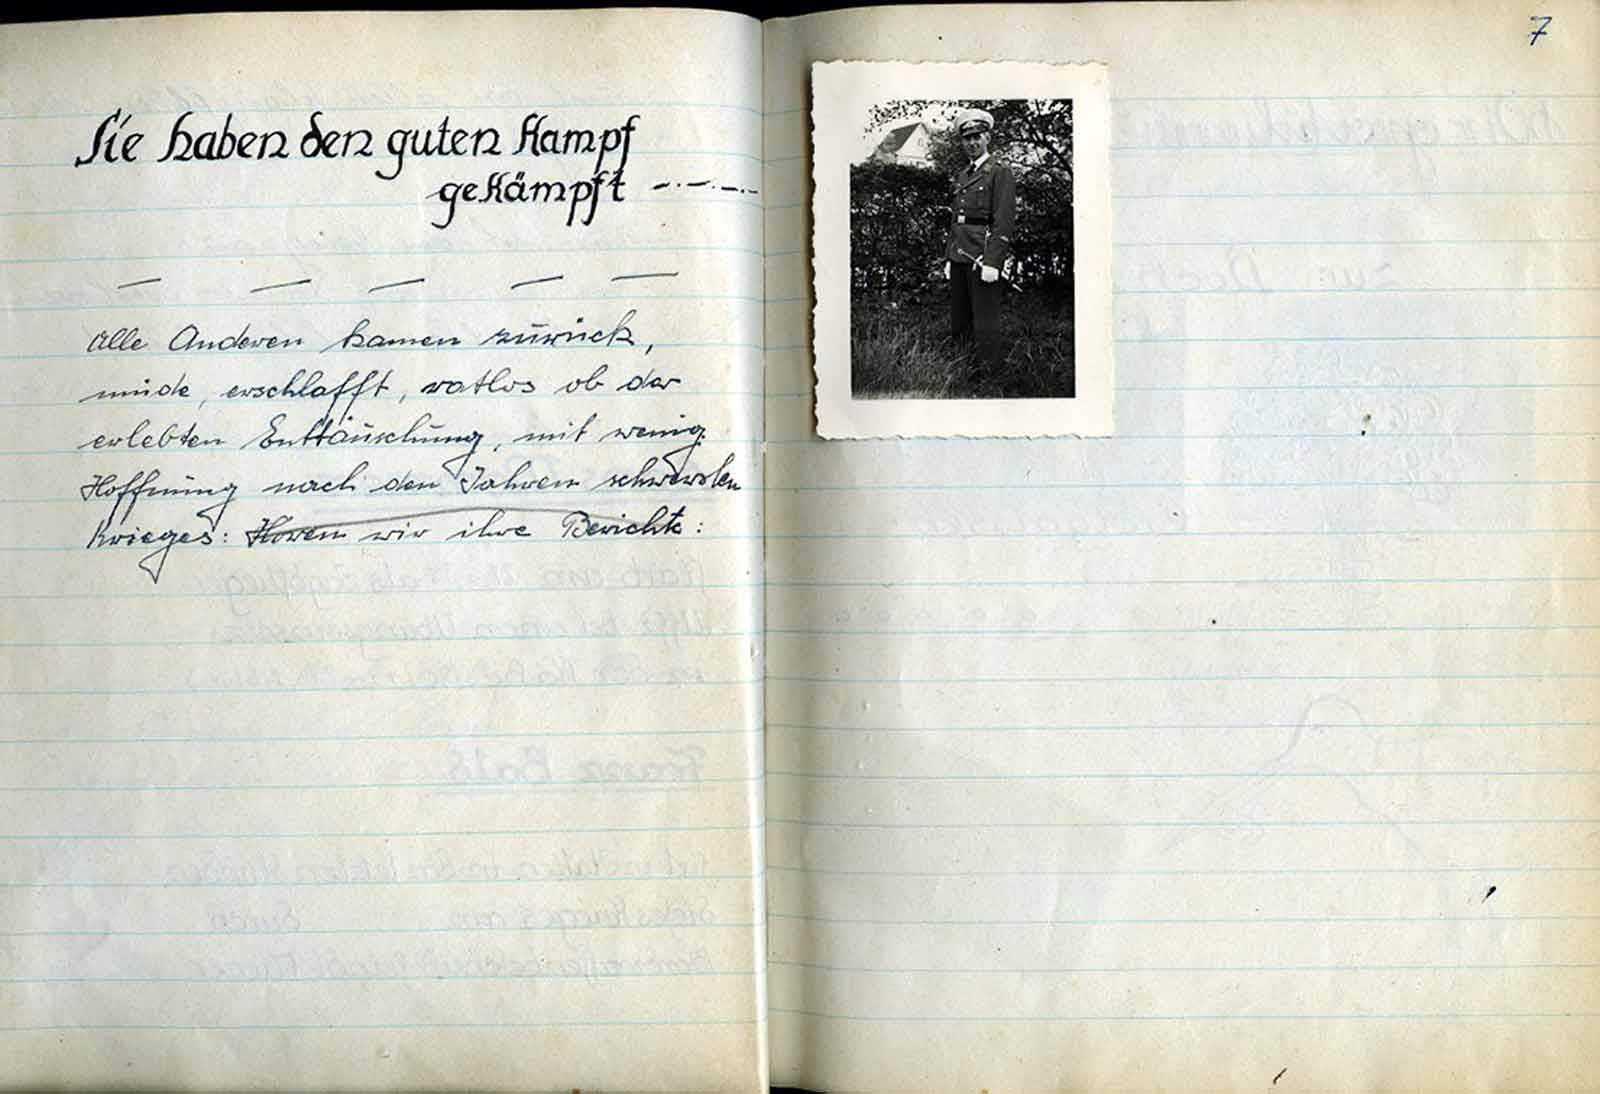 Sie haben den guten Kampf
gekämpft -.-.-.-
Alle Anderen kamen zurück,
müde, erschlafft, ratlos ob der
erlebten Enttäuschung, mit wenig
Hoffnung nach den Jahren schwersten
Krieges: Hören wir ihre Berichte:
7